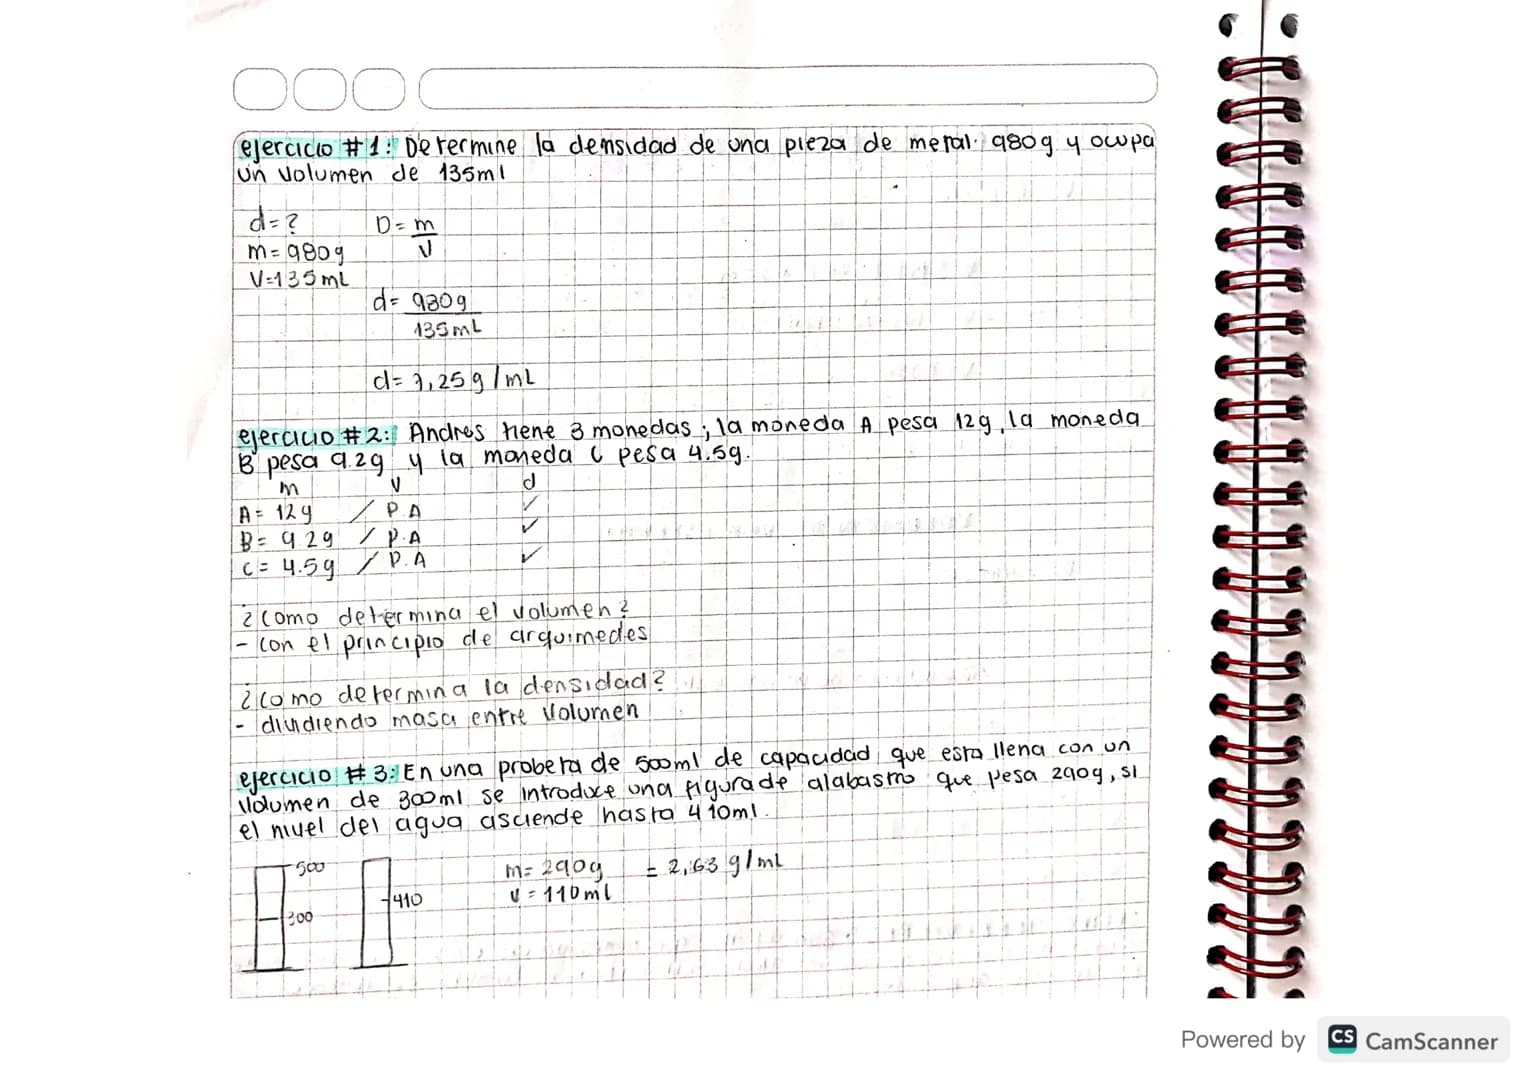 ejercicio #1: Determine la densidad de una pieza de metal. 980g y ocupa
un volumen de 135ml
d=?
D= m
V
m=980g
V=135mL
d= 980g
135mL
d= 7,25g/mL
ejercicio #2: Andres tiene 3 monedas; la moneda A pesa 12g, la moneda
B pesa 9.2g y la moneda C pesa 4.5g.
m V d
A= 12g / P.A ✓
B= 9 2g / P.A ✓
C= 4.5g / P.A ✓
¿como determina el volumen?
- con el principio de arquimedes
¿como determina la densidad?
- dividiendo masa entre volumen
ejercicio #3: En una probeta de 500ml de capacidad que esta llena con un
volumen de 300ml se introduce una figura de alabastro que pesa 290g, si
el nivel del agua asciende hasta 410ml.
500
300
410
m= 290g = 2,63 g/mL
v = 110ml
Powered by CS CamScanner